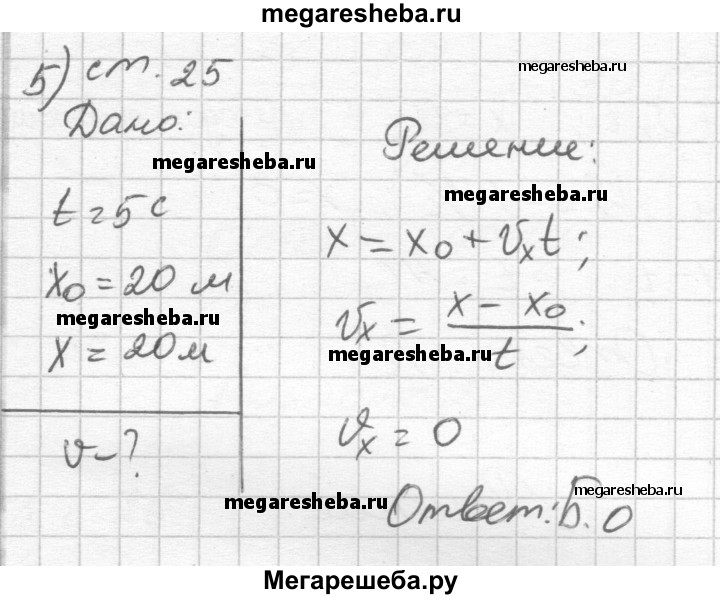 megaresheba.ru
5) ст. 25
megaresheba.ru
Дано:
Решение:
megaresheba.ru
megaresheba.ru
t = 5 с
x = x₀ + vₓt;
x₀ = 20 м
megaresheba.ru
vₓ = (x - x₀)/t;
megaresheba.ru
x = 20 м
v - ?
vₓ = 0
megaresheba.ru
megaresheba.ru
Ответ: Б. 0
Мегарешеба.ру